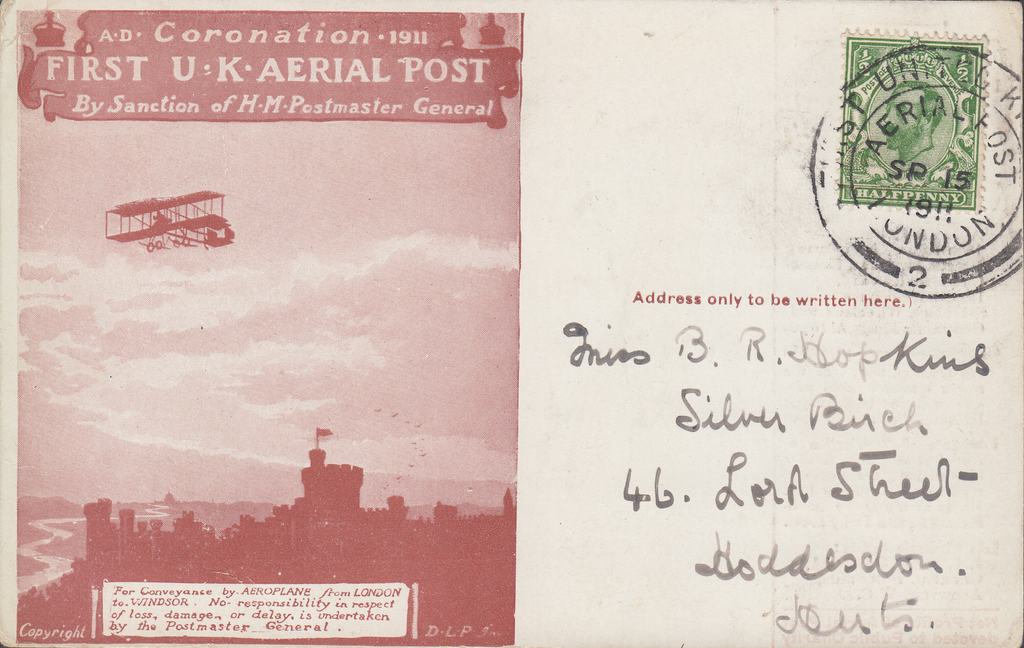 A·D· Coronation · 1911
FIRST U·K·AERIAL POST
By Sanction of H·M·Postmaster General
For Conveyance by AEROPLANE from LONDON
to WINDSOR. No responsibility in respect
of loss, damage, or delay, is undertaken
by the Postmaster General.
Copyright
D·L·P
POSTAGE
HALFPENNY
FIRST UNITED K
AERIAL POST
SP 15
1911
LONDON
2
Address only to be written here.)
Miss B. R. Hopkins
Silver Birch
46. Lord Street
Hoddesdon.
Herts.